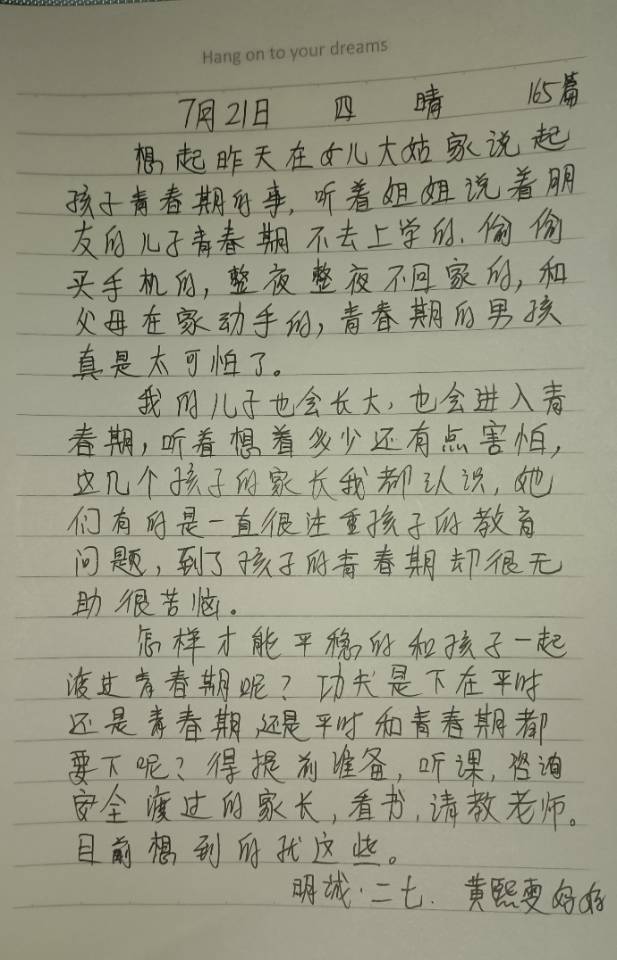 Hang on to your dreams
7月21日 四 晴 165篇
想起昨天在女儿大姑家说起
孩子青春期的事,听着姐姐说着朋
友的儿子青春期不去上学的,偷偷
买手机的,整夜整夜不回家的,和
父母在家动手的,青春期的男孩
真是太可怕了。
我的儿子也会长大,也会进入青
春期,听着想着多少还有点害怕,
这几个孩子的家长我都认识,她
们有的是一直很注重孩子的教育
问题,到了孩子的青春期却很无
助很苦恼。
怎样才能平稳的和孩子一起
渡过青春期呢?功夫是下在平时
还是青春期,还是平时和青春期都
要下呢?得提前准备,听课,咨询
安全渡过的家长,看书,请教老师。
目前想到的就这些。
明诚·二七.黄熙雯妈妈